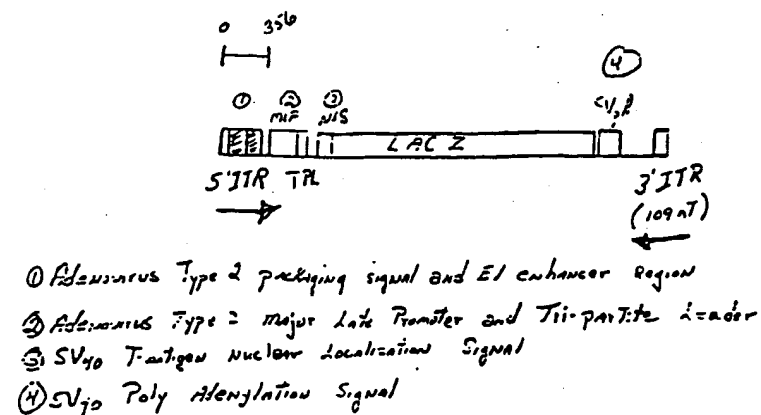 0 356
① ② ③ ④
MLP NLS SV40 pA
LAC Z
5'ITR TPL 3'ITR
(109 nT)
① Adenovirus Type 2 packaging signal and E1 enhancer Region
② Adenovirus Type 2 Major Late Promoter and Tri-partite Leader
③ SV40 T-antigen Nuclear Localization Signal
④ SV40 Poly Adenylation Signal